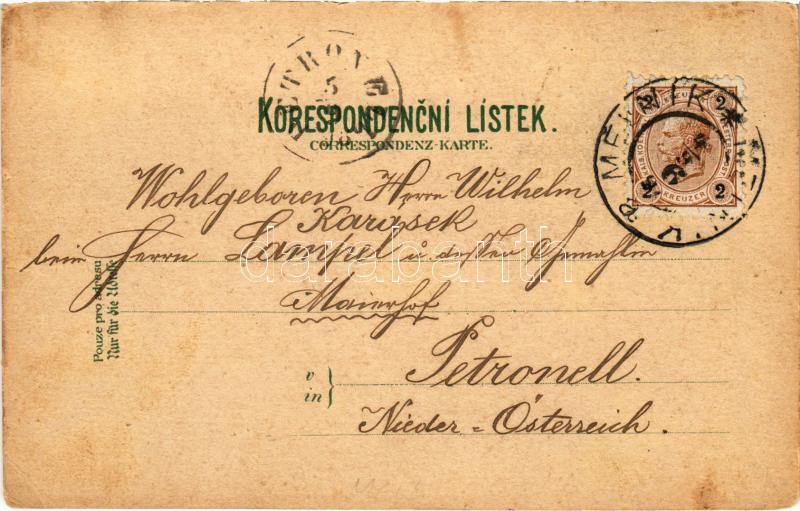 PETRONELL
5
KORESPONDENČNÍ LÍSTEK.
CORRESPONDENZ-KARTE.
MĚLNÍK
2 2
2 KREUZER 2
Wohlgeboren Herrn Wilhelm
Karasek
beim Herrn Lampel u. dessen Gemahlin
Maierhof
Petronell.
Nieder-Österreich.
v
in
Pouze pro adresu
Nur für die Adresse
darabanth